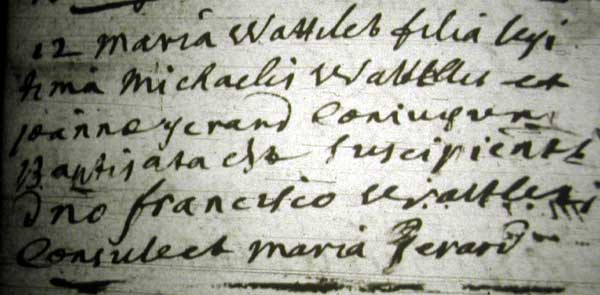 12 maria wattlet filia legi
tima Michaelis wattlet et
joanne gerard coniugum
Baptisata est suscipient
dno francisco wattlet
consule et maria gerard